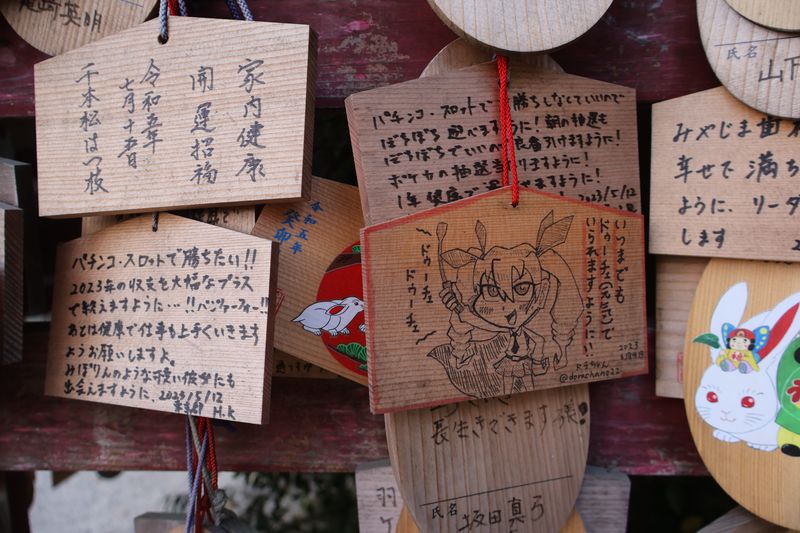 家内健康
開運招福
令和五年
七月十五日
千本松はつ枝
パチンコ・スロットで勝ちたい!!
2023年の収支を大幅なプラス
で終えますように…!!
あとは健康で仕事も上手くいきます
ようお願いしますよ。
みぽりんのような可愛い彼女にも
出会えますように、2023/5/12
H.K
令和五年
癸卯
パチンコ・スロットで勝ちなしでいいので
ぼちぼち遊べますように!朝の抽選も
ぼちぼちでいいので良番引けますように!
ポケカの抽選当たりますように!
2023/5/12
いつまでも
ドゥーチェ(元ネタ)で
いられますように!!
ドゥーチェ
ドゥーチェ
2023
@dorachano22
長生きできます様!
氏名
坂田真弓
氏名
山下
みやじま
幸せで満ち
ように、リーダ
します